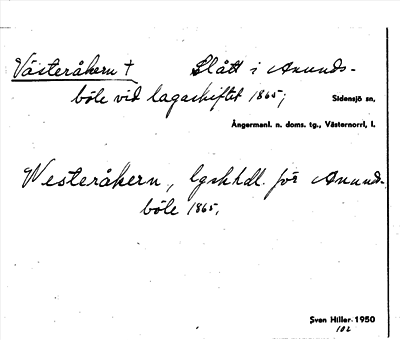 Västeråkern † Slått i Anunds-
böle vid lagaskiftet 1865;
Sidensjö sn,
Ångermanl. n. doms. tg., Västernorrl. l.
Westeråkern, lgskhdl. för Anunds-
böle 1865,
Sven Hiller 1950
102